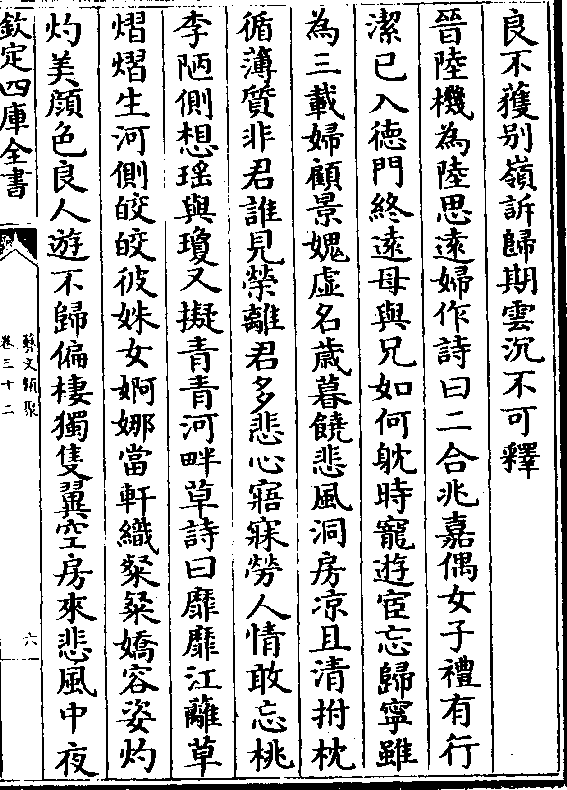 良不獲别嶺訴歸期雲沉不可釋
晉陸機為陸思遠婦作詩曰二合兆嘉偶女子禮有行
潔已入徳門終遠母與兄如何躭時寵遊宦忘歸寧雖
為三載婦顧景媿虚名歳暮饒悲風洞房凉且清拊枕
循薄質非君誰見榮離君多悲心寤寐勞人情敢忘桃
李陋側想瑶與瓊又擬青青河畔草詩曰靡靡江蘺草
熠熠生河側皎皎彼姝女婀娜當軒織粲粲嬌容姿灼
灼美顔色良人遊不歸偏棲獨隻翼空房來悲風中夜
欽定四庫全書
藝文類聚
卷三十二
六